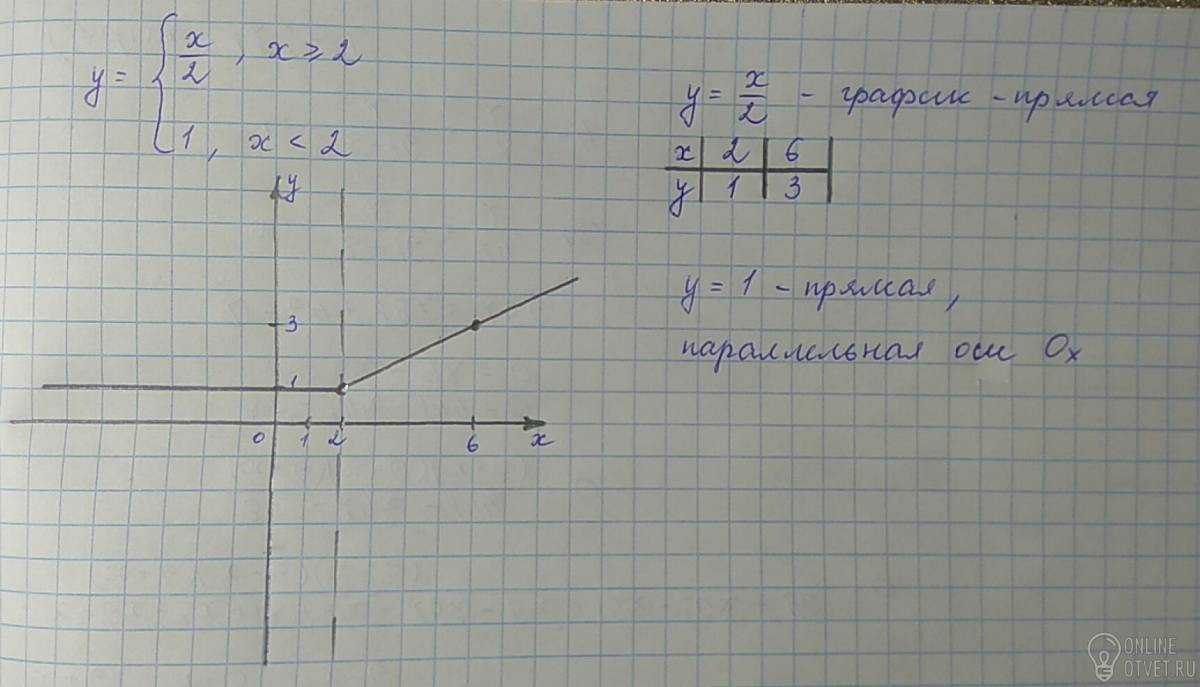 y = { x/2 , x ⩾ 2
1 , x < 2
y = x/2 - график - прямая
x | 2 | 6
y | 1 | 3
y = 1 - прямая,
параллельная оси Ox
y
3
1
0 1 2 6 x
ONLINE
OTVET.RU